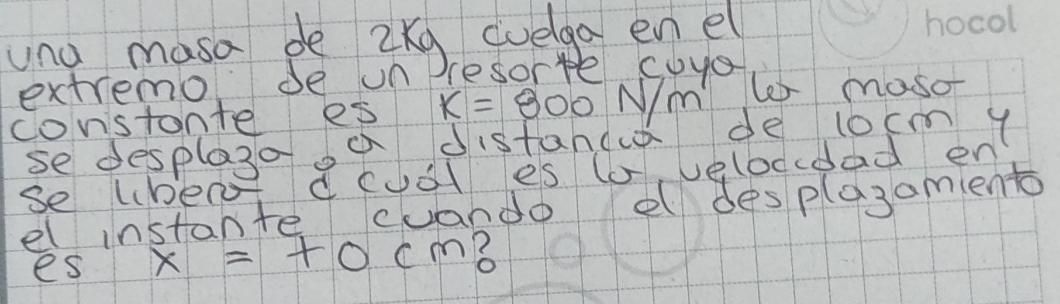 hocol
una masa de 2Kg cuelga en el
extremo de un resorte cuya
constante es K = 800 N/m la masa
se desplaza a distancia de 10cm y
se libera ¿cuál es la velocidad en
el instante cuando el desplazamiento
es x = +0 cm?